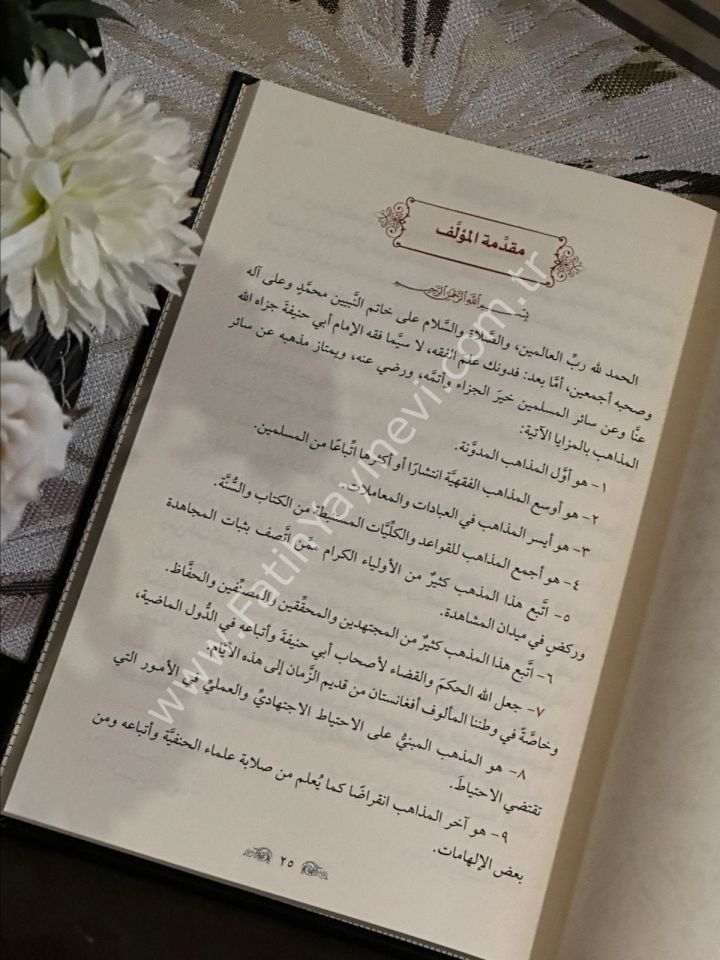 مقدَّمة المؤلَّف
بسم الله الرحمن الرحيم
الحمد لله ربِّ العالمين، والصَّلاة والسَّلام على خاتم النَّبيين محمَّدٍ وعلى آله
وصحبه أجمعين، أمَّا بعد: فدونك علم الفقه، لا سيَّما فقه الإمام أبي حنيفةَ جزاه الله
عنَّا وعن سائر المسلمين خيرَ الجزاء وأتمَّه، ورضي عنه، ويمتاز مذهبه عن سائر
المذاهب بالمزايا الآتية:
١- هو أوَّل المذاهب المدوَّنة.
٢- هو أوسع المذاهب الفقهيَّة انتشارًا وأكثرها اتِّباعًا من المسلمين.
٣- هو أيسر المذاهب في العبادات والمعاملات.
٤- هو أجمع المذاهب للقواعد والكلِّيَّات المستنبطة من الكتاب والسُّنَّة.
٥- اتَّبع هذا المذهب كثيرٌ من الأولياء الكرام ممَّن اتَّصف بثبات المجاهدة
وركضٍ في ميدان المشاهدة.
٦- اتَّبع هذا المذهب كثيرٌ من المجتهدين والمحقِّقين والمصنِّفين والحفَّاظ.
٧- جعل الله الحكمَ والقضاء لأصحاب أبي حنيفةَ وأتباعه في الدُّول الماضية،
وخاصَّةً في وطننا المألوف أفغانستان من قديم الزَّمان إلى هذه الأيَّام.
٨- هو المذهب المبنيُّ على الاحتياط الاجتهاديِّ والعمليِّ في الأمور التي
تقتضي الاحتياطَ.
٩- هو آخر المذاهب انقراضًا كما يُعلم من صلابة علماء الحنفيَّة وأتباعه ومن
بعض الإلهامات.
٢٥
www.FatihYayinevi.com.tr